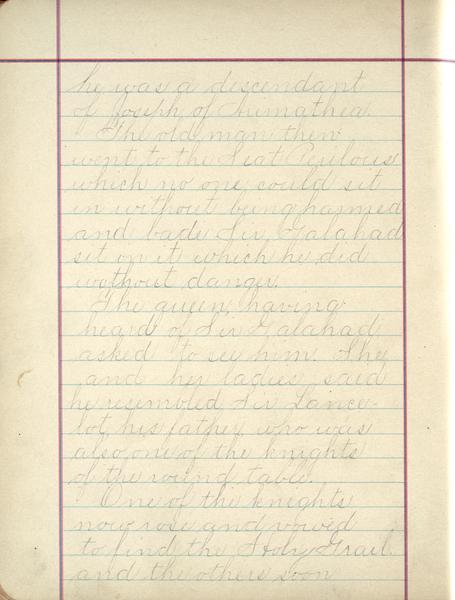 he was a descendant
of Joseph of Arimathea.
The old man then
went to the Seat Perilous
which no one could sit
in without being harmed
and bade Sir Galahad
sit on it which he did
without danger.
The queen, having
heard of Sir Galahad
asked to see him. She
and her ladies said
he resembled Sir Lance-
lot, his father, who was
also one of the knights
of the round table.
One of the knights
now rose and vowed
to find the Holy Grail
and the others soon